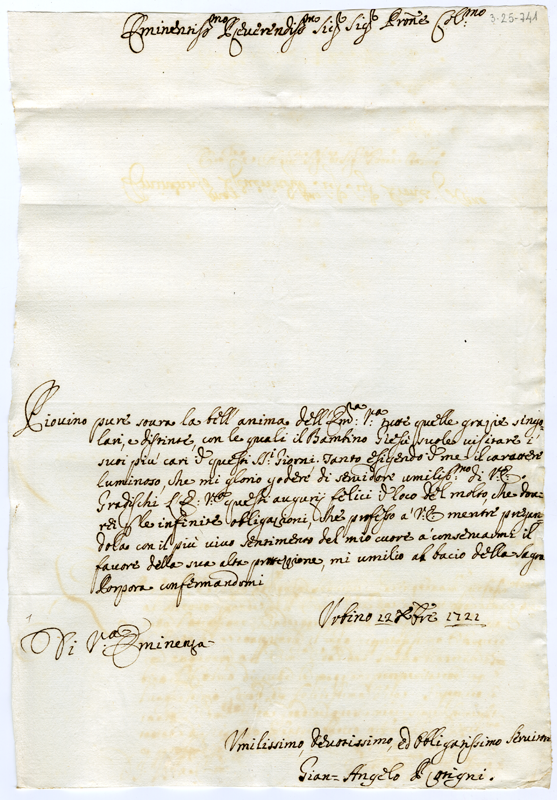 3-25-741
Eminentiss.mo Reverendiss.mo Sig.r Sig.r Prone Col.mo
Piovino pure soura la bell'anima dell'Em.za V.ra tutte quelle grazie singo
lari, e distinte, con le quali il Bambino Giesù suole visitare i
suoi più cari in questi S.ti Giorni. Tanto esigendo da me il carattere
luminoso, che mi glorio godere di servidore umiliss.mo di V.E.
Gradischi l'E. V.ra questi augurj felici in loco del molto, che dou
rei p le infinite obligazioni, che professo a V.E. mentre pregan
dola con il più vivo sentimento del mio cuore a conseruarmi il
favore della sua alta protezzione, mi umilio al bacio della sagra
Porpora confermandomi
Urbino 22 Xbre 1721
Di V.ra Eminenza
Umilissimo, devotissimo, ed obbligatissimo Servitore
Gian Angelo